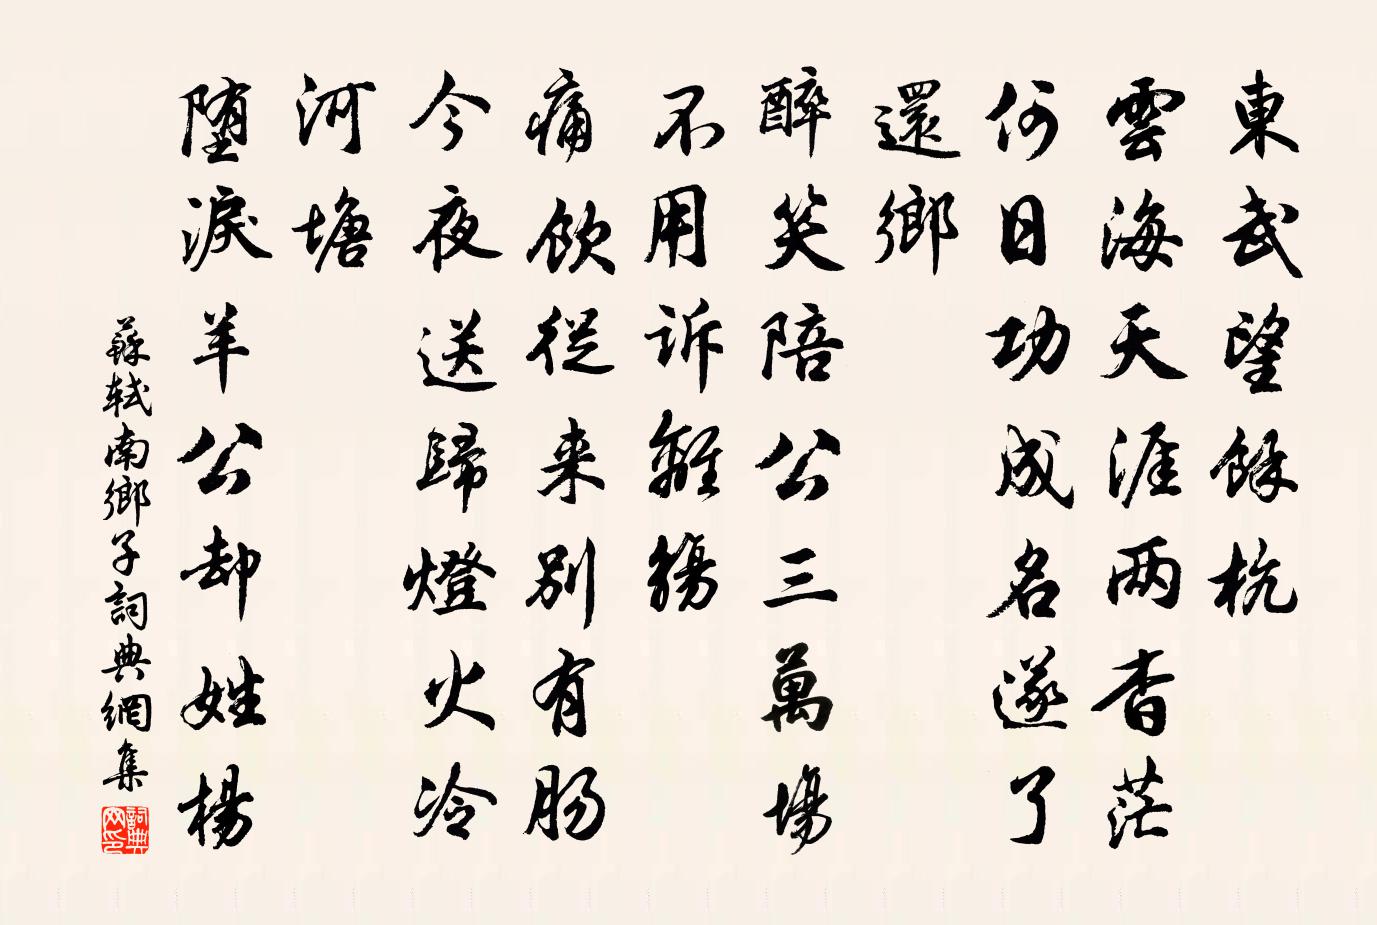 東武望餘杭
雲海天涯兩杳茫
何日功成名遂了
還鄉
醉笑陪公三萬場
不用訴離觴
痛飲從来別有肠
今夜送歸燈火冷
河塘
堕淚羊公却姓楊
蘇轼南鄉子詞典網集
詞典網印